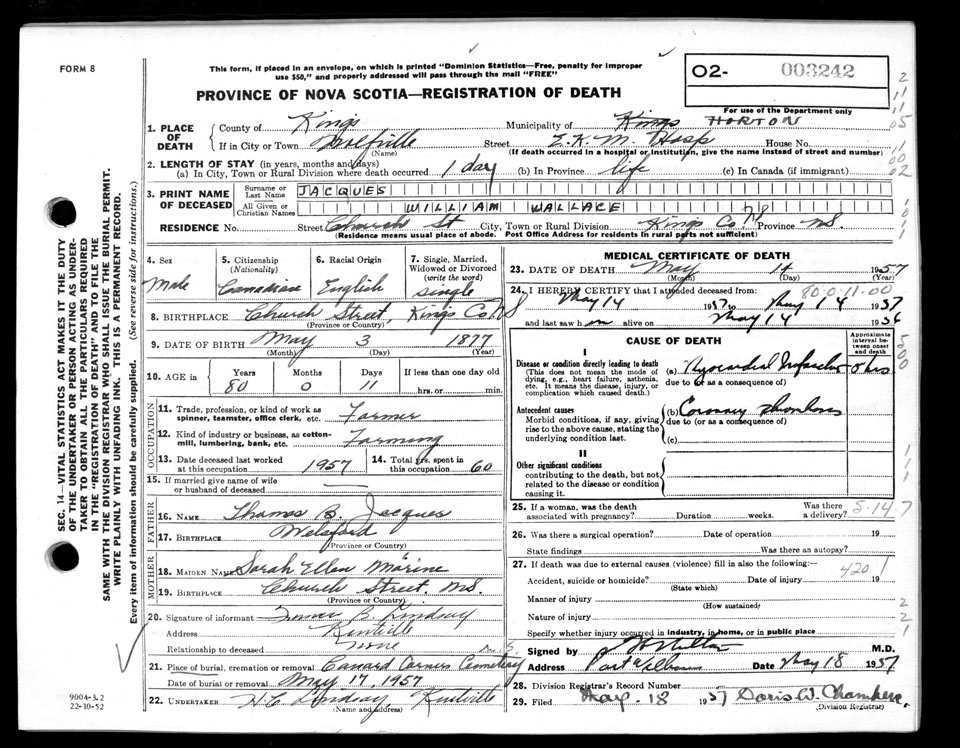 FORM 8
This form, if placed in an envelope, on which is printed "Dominion Statistics—Free, penalty for improper
use $50," and properly addressed will pass through the mail "FREE"
PROVINCE OF NOVA SCOTIA—REGISTRATION OF DEATH
02- 003242
For use of the Department only
1. PLACE OF DEATH
County of Kings Municipality of Kings HORTON
If in City or Town Wolfville Street E.K.M. Hosp House No.
(Name) (If death occurred in a hospital or institution, give the name instead of street and number)
2. LENGTH OF STAY (in years, months and days)
(a) In City, Town or Rural Division where death occurred 1 day (b) In Province life (c) In Canada (if immigrant)
3. PRINT NAME OF DECEASED
Surname or Last Name JACQUES
All Given or Christian Names WILLIAM WALLACE
RESIDENCE No. Street Church St City, Town or Rural Division Kings Co. Province NS
(Residence means usual place of abode. Post Office Address for residents in rural parts not sufficient)
4. Sex
Male
5. Citizenship
(Nationality)
Canadian
6. Racial Origin
English
7. Single, Married,
Widowed or Divorced
(write the word)
Single
8. BIRTHPLACE Church Street, Kings Co. NS
(Province or Country)
9. DATE OF BIRTH May 3 1877
(Month) (Day) (Year)
10. AGE in Years Months Days If less than one day old
80 0 11 hrs. or min.
OCCUPATION
11. Trade, profession, or kind of work as
spinner, teamster, office clerk, etc. Farmer
12. Kind of industry or business, as cotton-
mill, lumbering, bank, etc. Farming
13. Date deceased last worked
at this occupation 1957
14. Total yrs. spent in
this occupation 60
15. If married give name of wife
or husband of deceased —
FATHER
16. NAME Thomas B. Jacques
17. BIRTHPLACE Welsford
(Province or Country)
MOTHER
18. MAIDEN NAME Sarah Ellen Marine
19. BIRTHPLACE Church Street. NS.
(Province or Country)
20. Signature of informant B. Lindsay
Address Kentville
Relationship to deceased none
21. Place of burial, cremation or removal Canard Corner Cemetery
Date of burial or removal May 17 1957
22. UNDERTAKER H C Lindsay, Kentville
(Name and address)
MEDICAL CERTIFICATE OF DEATH
23. DATE OF DEATH May 14 1957
(Month) (Day) (Year)
24. I HEREBY CERTIFY that I attended deceased from: 80-0-11-00
May 14 1957 to May 14 1957
and last saw h im alive on May 14 1956
CAUSE OF DEATH
Approximate
interval be-
tween onset
and death
I
Disease or condition directly leading to death
(This does not mean the mode of
dying, e.g., heart failure, asthenia,
etc. It means the disease, injury, or
complication which caused death.)
(a) Myocardial Infarction 8 hrs
due to (or as a consequence of)
Antecedent causes
Morbid conditions, if any, giving
rise to the above cause, stating the
underlying condition last.
(b) Coronary Thrombosis
due to (or as a consequence of)
(c)
II
Other significant conditions
contributing to the death, but not
related to the disease or condition
causing it.
25. If a woman, was the death
associated with pregnancy? Duration weeks. Was there
a delivery?
5-14-7
26. Was there a surgical operation? Date of operation 19
State findings Was there an autopsy?
27. If death was due to external causes (violence) fill in also the following:
420.1
Accident, suicide or homicide? Date of injury 19
(State which)
Manner of injury
(How sustained)
Nature of injury
Specify whether injury occurred in industry, in home, or in public place
Signed by M.D.
Address Port Williams Date May 18 1957
28. Division Registrar's Record Number
29. Filed May. 18 1957 Doris W. Chambers.
(Division Registrar)
SEC. 14—VITAL STATISTICS ACT MAKES IT THE DUTY
OF THE UNDERTAKER OR PERSON ACTING AS UNDER-
TAKER TO OBTAIN ALL THE PARTICULARS REQUIRED
IN THE "REGISTRATION OF DEATH" AND TO FILE THE
SAME WITH THE DIVISION REGISTRAR WHO SHALL ISSUE THE BURIAL PERMIT.
WRITE PLAINLY WITH UNFADING INK. THIS IS A PERMANENT RECORD.
Every item of Information should be carefully supplied. (See reverse side for instructions.)
9004-3.2
22-10-52